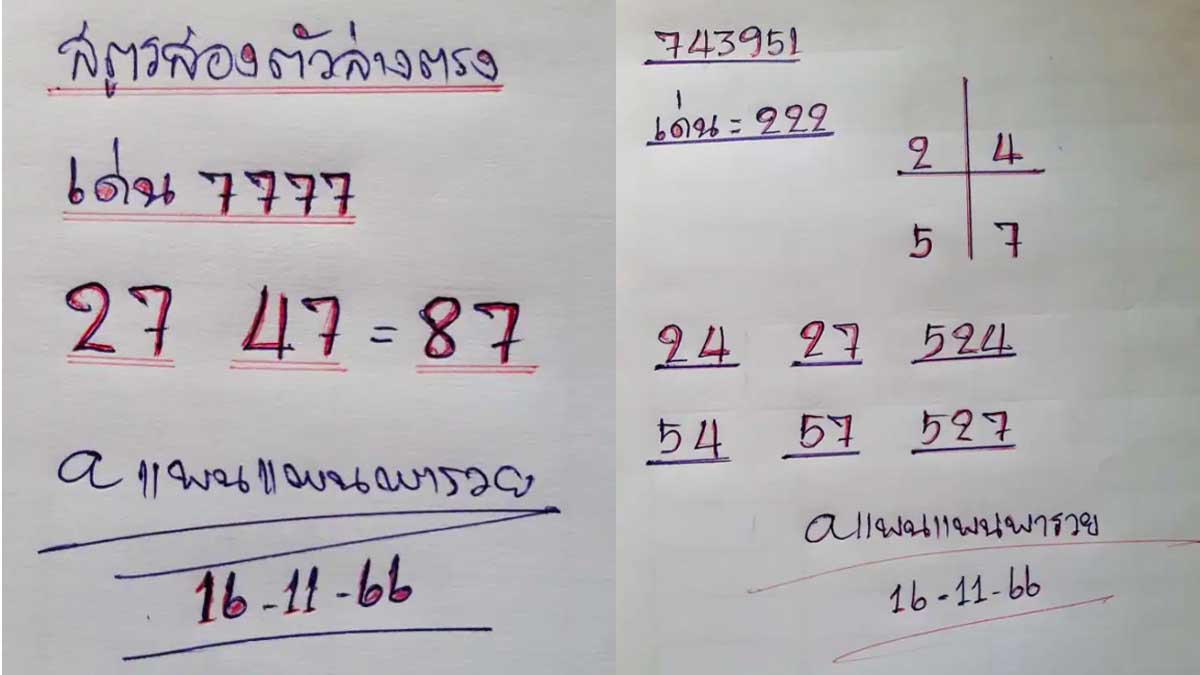 สูตรสองตัวล่างตรง
เด่น 7777
27 47 = 87
a แพนแพนพารวย
16-11-66
743951
เด่น = 222
2 4
5 7
24 27 524
54 57 527
aแพนแพนพารวย
16-11-66